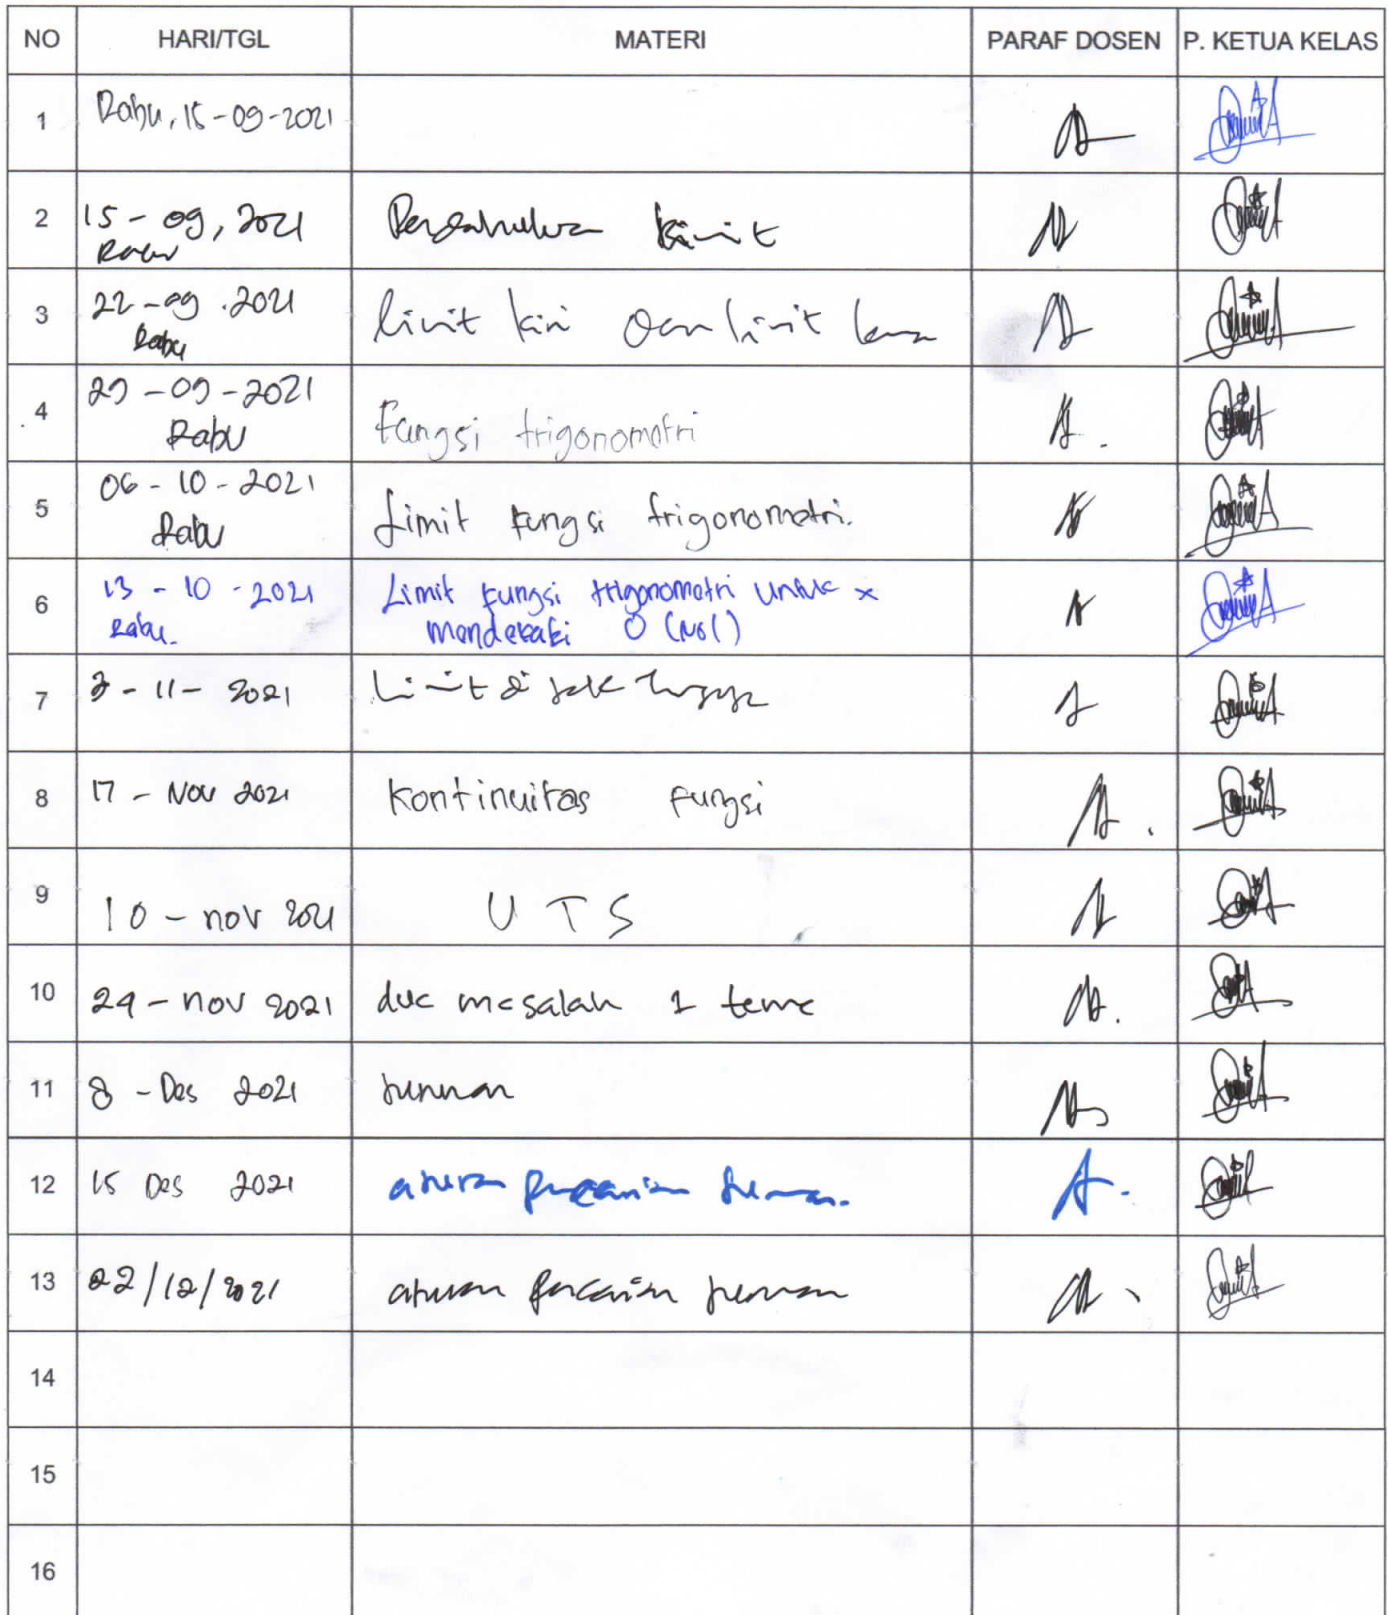 NO HARI/TGL MATERI PARAF DOSEN P. KETUA KELAS
1 Rabu, 15-09-2021
2 15-09, 2021 Pendahuluan limit
Rabu
3 22-09.2021 limit kiri dan limit kanan
Rabu
4 29-09-2021 Fungsi trigonometri
Rabu
5 06-10-2021 Limit Fungsi trigonometri.
Rabu
6 13-10-2021 Limit Fungsi trigonometri untuk x
Rabu. mendekati 0 (Nol)
7 3-11-2021 Limit di tak hingga
8 17-Nov 2021 Kontinuitas Fungsi
9 10-nov 2021 UTS
10 24-nov 2021 dua masalah 1 tema
11 8-Des 2021 turunan
12 15 Des 2021 aturan pencarian turunan.
13 22/12/2021 aturan pencarian turunan
14
15
16